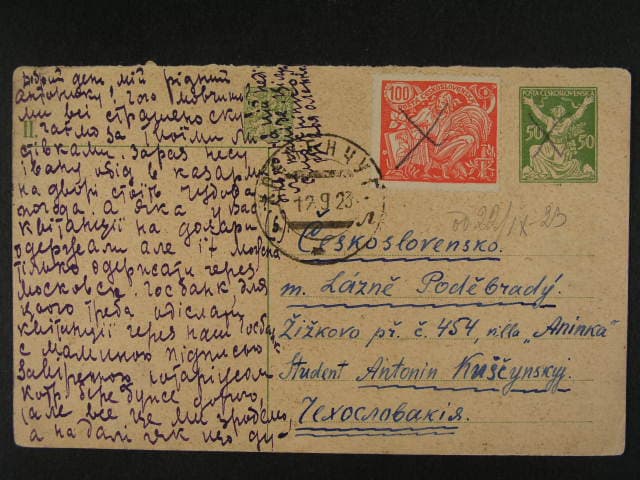 Добрий день, мій рідний
Антоніку, чого мовчиш
ми всі страшенно ску
чаймо за Твоїми ли
стівками. зараз несу
івану обід в казарм
на дворі стоїть чудова
погода. а
квітанції на долари
одержали але їх можна
тілько одержати через
Московськ. Госбанк для
цього треба одіслать
квітанції через наш Госбан.
с маминою підписью
завіренною нотаріусом
котр. бере дуже дорого,
(але все це ми зробемо,
а на далі
II.
100
POŠTA ČESKOSLOVENSKÁ
POŠTA ČESKOSLOVENSKÁ
50 50
12.9 23
од 22/IX - 23
Československo.
m. Lázně Poděbrady.
Žižkovo př. č. 454, villa „Aninka"
Student Antonin Kuščynskyj
Чехословакія.